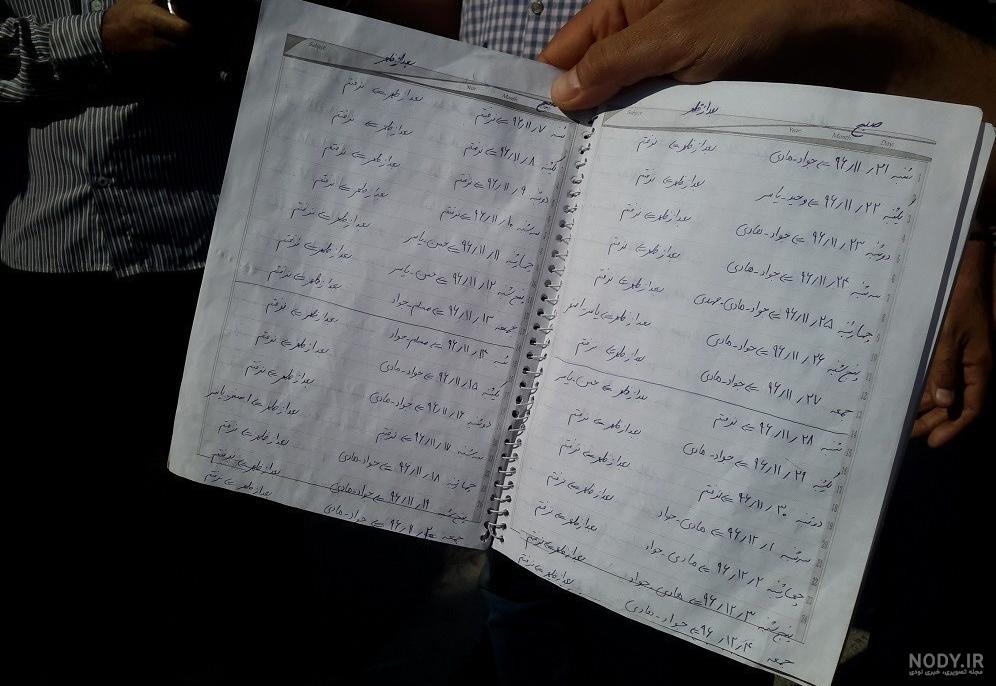 Subject بعد از ظهر Year Month صبح
شنبه ۹۶/۱۱/۷ => نرفتم بعد از ظهر => نرفتم
یکشنبه ۹۶/۱۱/۸ => نرفتم بعد از ظهر => نرفتم
دوشنبه ۹۶/۱۱/۹ => نرفتم بعد از ظهر => نرفتم
سه شنبه ۹۶/۱۱/۱۰ => نرفتم بعد از ظهر => نرفتم
چهارشنبه ۹۶/۱۱/۱۱ => حسن-یاسر بعد از ظهر => نرفتم
پنج شنبه ۹۶/۱۱/۱۲ => حسن-یاسر بعد از ظهر => نرفتم
جمعه ۹۶/۱۱/۱۳ => مسلم-جواد بعد از ظهر => نرفتم
شنبه ۹۶/۱۱/۱۴ => مسلم-جواد بعد از ظهر => نرفتم
یکشنبه ۹۶/۱۱/۱۵ => جواد-هادی بعد از ظهر => نرفتم
دوشنبه ۹۶/۱۱/۱۶ => جواد-هادی بعد از ظهر => نرفتم
سه شنبه ۹۶/۱۱/۱۷ => نرفتم بعد از ظهر => اصغر-یاسر
چهارشنبه ۹۶/۱۱/۱۸ => جواد-هادی بعد از ظهر => نرفتم
پنج شنبه ۹۶/۱۱/۱۹ => جواد-هادی بعد از ظهر => نرفتم
جمعه => جواد-هادی بعد از ظهر => نرفتم
Subject بعد از ظهر Year Month صبح Day
شنبه ۹۶/۱۱/۲۱ => جواد-هادی بعد از ظهر => نرفتم
یکشنبه ۹۶/۱۱/۲۲ => وحید-یاسر بعد از ظهر => نرفتم
دوشنبه ۹۶/۱۱/۲۳ => جواد-هادی بعد از ظهر => نرفتم
سه شنبه ۹۶/۱۱/۲۴ => جواد-هادی بعد از ظهر => نرفتم
چهارشنبه ۹۶/۱۱/۲۵ => جواد-هادی-مهدی بعد از ظهر => نرفتم
پنج شنبه ۹۶/۱۱/۲۶ => جواد-هادی بعد از ظهر => یاسر
جمعه ۹۶/۱۱/۲۷ => جواد-هادی بعد از ظهر => نرفتم
شنبه ۹۶/۱۱/۲۸ => نرفتم بعد از ظهر => حسن-یاسر
یکشنبه ۹۶/۱۱/۲۹ => جواد-هادی بعد از ظهر => نرفتم
دوشنبه ۹۶/۱۱/۳۰ => نرفتم بعد از ظهر => نرفتم
سه شنبه ۹۶/۱۲/۱ => هادی-جواد بعد از ظهر => نرفتم
چهارشنبه ۹۶/۱۲/۲ => هادی-جواد بعد از ظهر => نرفتم
پنج شنبه ۹۶/۱۲/۳ => هادی-جواد بعد از ظهر => نرفتم
جمعه ۹۶/۱۲/۴ => جواد-هادی بعد از ظهر => نرفتم
NODY.IR
مجله تصویری، خبری نودی